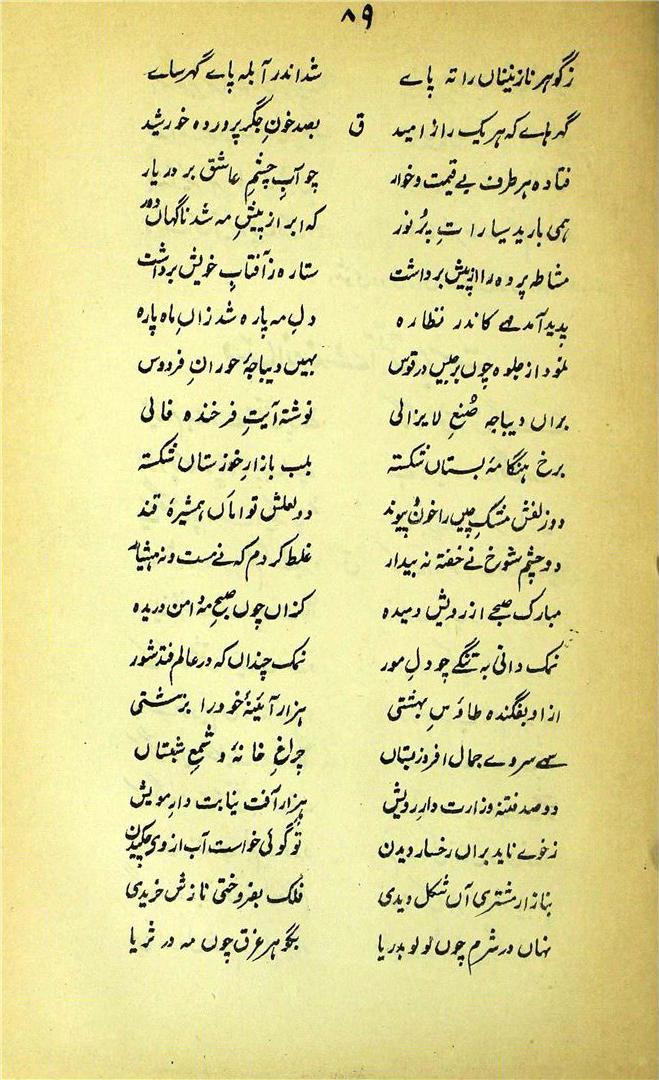 ۸۹
زگوہر نازنیناں را تہ پاے شد اندر آبلہ پاے گہر ساے
گہرہاے کہ ہر یک را ز امید ق بصد خونِ جگر پروردہ خورشید
فتادہ ہر طرف بے قیمت و خوار چو آبِ چشمِ عاشق بر درِ یار
ہمی بارید سیارات پُر نور کہ ابر از پیشِ مہ شد ناگہاں دور
مشاطہ پردہ را از پیش برداشت ستارہ ز آفتابِ خویش برداشت
پدید آمد مہے کاندر نظارہ دلِ مہ پارہ شد زاں ماہ پارہ
نمود از جلوہ چوں برجیس در قوس بہیں دیباجۂ حورانِ فردوس
براں دیباجہ صُنعِ لایزالی نوشتہ آیتِ فرخندہ فالی
برخ ہنگامۂ بستاں شکستہ بلب بازارِ خوزستاں شکستہ
دو زلفش مشکِ چیں را خونِ پیوند دو لعلش تواماں ہمشیرۂ قند
دو چشمِ شوخ نے خفتہ نہ بیدار غلط کردم کہ نے مست و نہ ہشیار
مبارک صبحے از رویش دمیدہ کزاں چوں صبح مہ دامن دریدہ
نمک دانی بہ تنگے چو دلِ مور نمک چنداں کہ در عالم فتد شور
از او بفگندہ طاؤسِ بہشتی ہزار آئینۂ خود را بزشتی
سہے سروے جمال افروز بستاں چراغِ خانہ و شمعِ شبستاں
دو صد فتنہ وزارت دارِ رویش ہزار آفت نیابت دارِ مویش
زخوے ناید براں رخسار دیدن تو گوئی خواست آب از وی چکیدن
بنازار مشتری آں شکل دیدی فلک بفروختی نازش خریدی
نہاں در شرم چوں لولو بدریا بگوہر غرق چوں مہ در ثریا